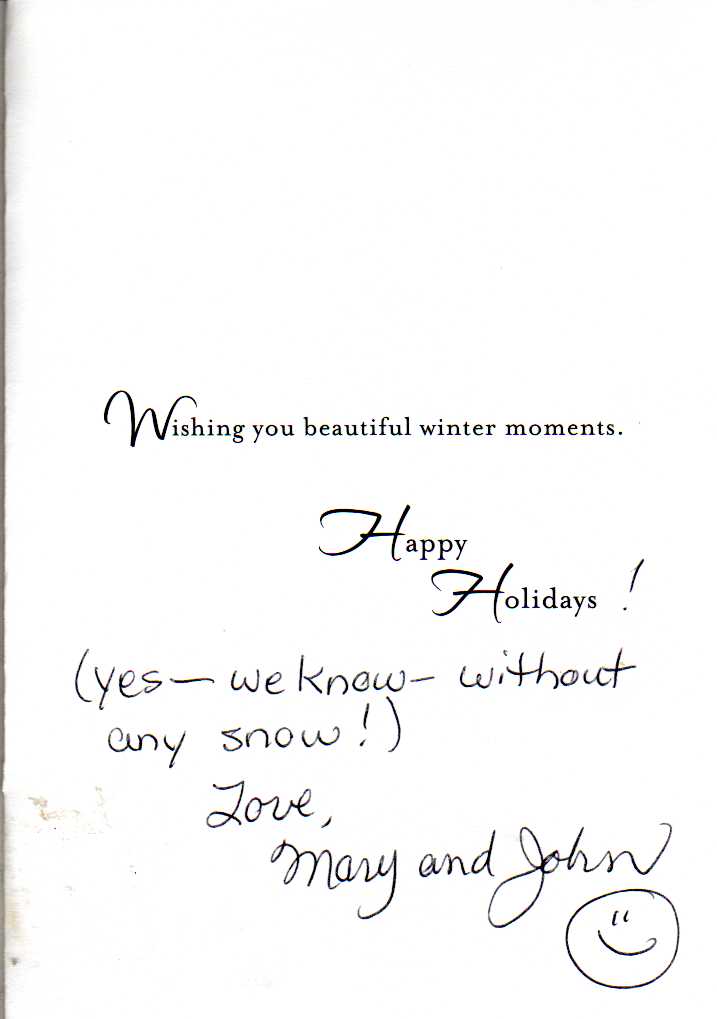 Wishing you beautiful winter moments.
Happy
Holidays !
(yes — we know — without
any snow!)
Love,
Mary and John